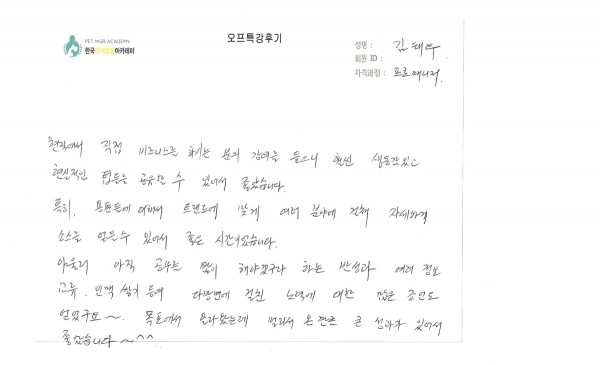 PET MGR ACADEMY
한국반려동물아카데미
오프특강후기
성명 : 김태우
회원 ID :
자격과정 : 프로매니저
현장에서 직접 비즈니스를 하시는 분의 강의를 들으니 훨씬 생동감있고
현실적인 팁들을 공유할 수 있어서 좋았습니다.
특히, 용품들에 대해서 트렌드에 맞게 여러 분야에 걸쳐 자세하게
소스를 얻을 수 있어서 좋은 시간이었습니다.
아울러 아직 공부를 많이 해야겠구나 하는 반성과 여러 정보
교류, 인맥 쌓기 등에 다방면에 걸친 노력에 대한 많은 조언도
얻었구요~. 목포에서 올라왔는데 멀리서 온 만큼 큰 성과가 있어서
좋았습니다~^^